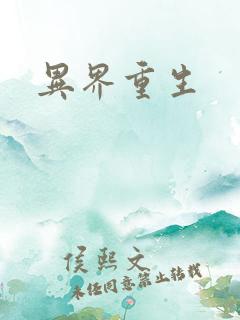 異界重生
侯熙文
未經同意禁止轉載